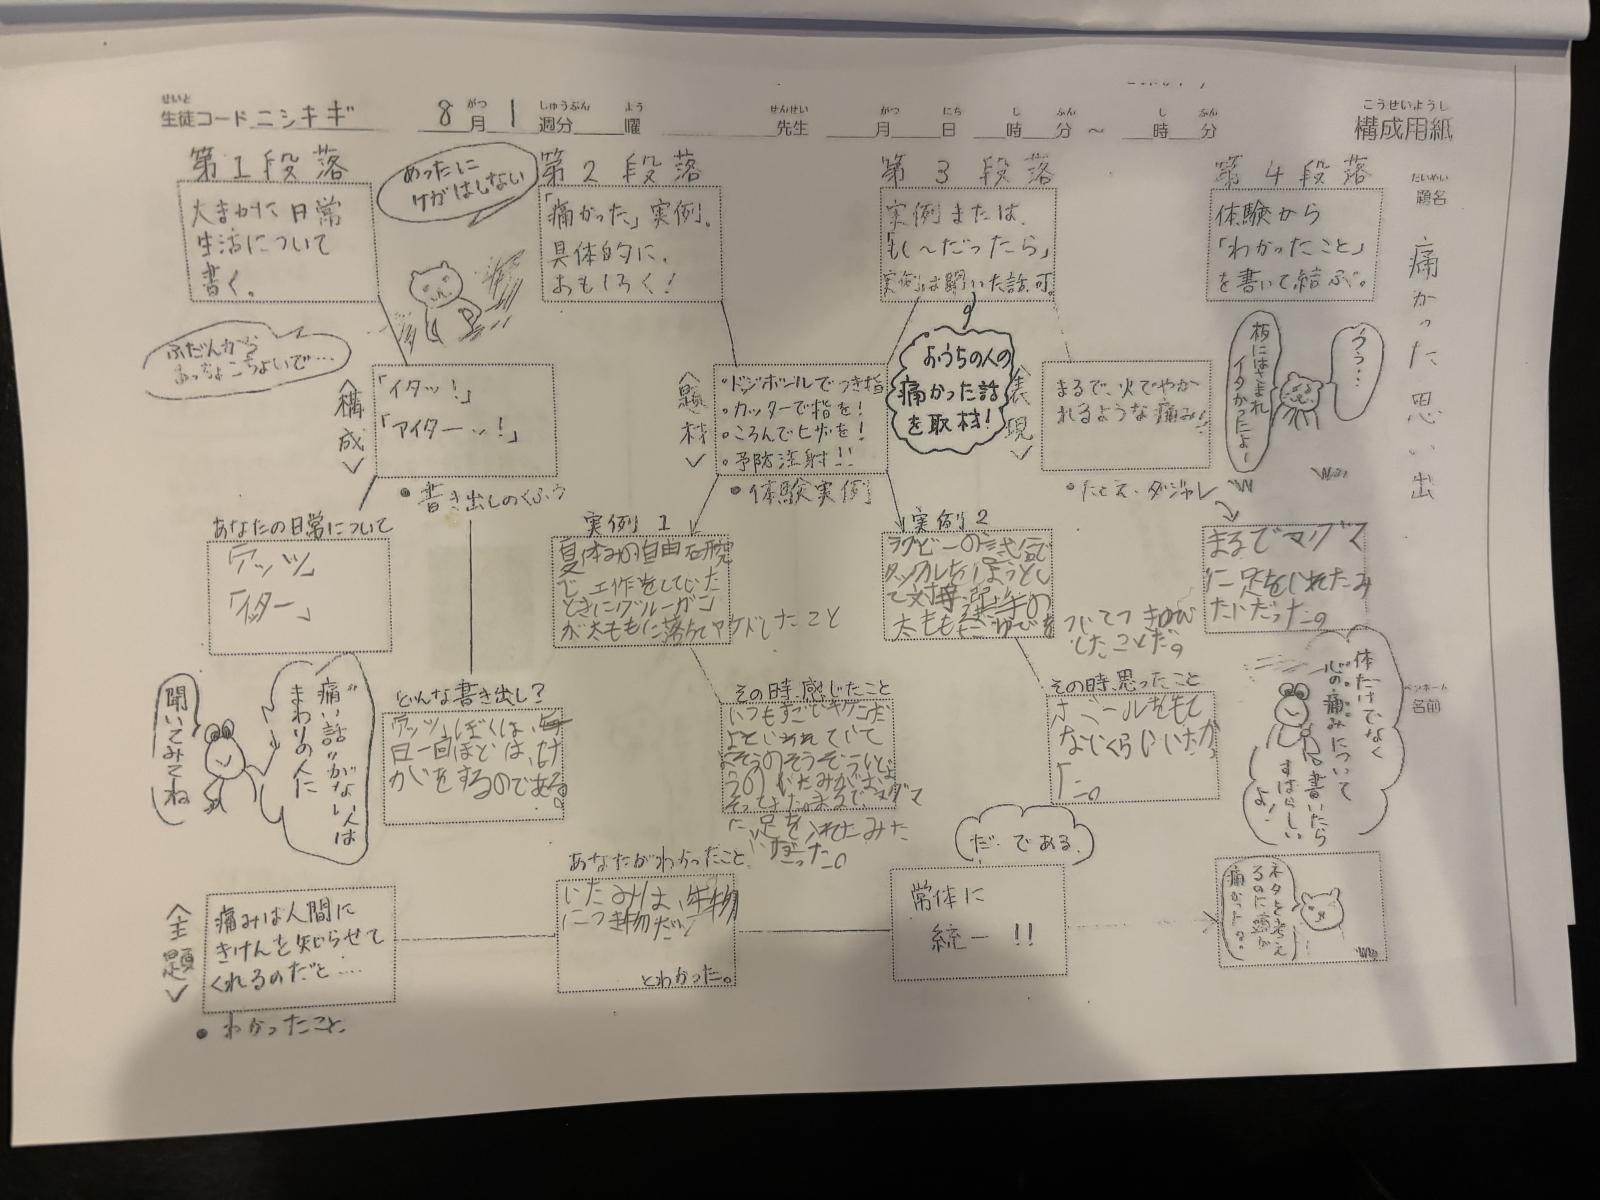 せいと がつ しゅうぶん よう せんせい がつ にち じ ふん じ ふん こうせいようし
生徒コード ニシキギ 8月 1週分 曜 先生 月 日 時 分 〜 時 分 構成用紙
だいめい
題名
痛かった思い出
ペンネーム
名前
第1段落
大まかに日常
生活について
書く。
めったに
けがはしない
第2段落
「痛かった」実例。
具体的に。
おもしろく!
第3段落
実例または、
「もし〜だったら」
実例は聞いた話可。
第4段落
体験から
「わかったこと」
を書いて結ぶ。
ふだんから
おっちょこちょいで…
<構成>
「イタッ!」
「アイターッ!」
•書き出しのくふう
<題材>
•ドッジボールでつき指
•カッターで指を!
•ころんでヒザを!
•予防注射!!
•体験実例
おうちの人の
痛かった話
を取材!
<表現>
まるで、火でやか
れるような痛み!
•たとえ・ダジャレ
板にはさまれ
イタかったよー
うう…
あなたの日常について
「アッツ」
「イター」
実例1
夏休みの自由研究
で、工作をしていた
ときにグルーガン
が太ももに落ちてヤケドしたこと
実例2
ラグビーの試合で
タックルをしようとし
て対
太もも
ついてつきゆび
したことだ。
まるでマグマ
に足をいれたみ
たいだった。
聞いてみてね
"痛い話"がない人は
まわりの人に
どんな書き出し?
アッツ、ぼくは、毎
日一回ほどは、け
がをするのである。
その時、感じたこと
いつもすごくキケンだ
よといわれていて
いたみがお
そってきた。まるで、マグマ
に足を入れたみた
いだった。
その時、思ったこと
ボールをもて
ないくらいいたか
った。
体だけでなく
心の痛みについて
書いたら
すばらしい
よ!
<主題>
痛みは人間に
きけんを知らせて
くれるのだと…
•わかったこと
あなたがわかったこと
いたみは、生物
につき物だ
とわかった。
だ・である
常体に
統一!!
ネタを考え
るのに頭が
痛かったよ。